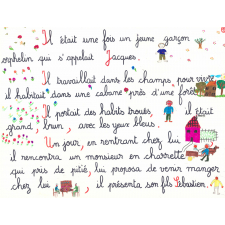 Il était une fois un jeune garçon
orphelin qui s'appelait Jacques.
Il travaillait dans les champs pour vivre
il habitait dans une cabane près d'une forêt
Il portait des habits troués, il était
grand, brun, avec les yeux bleus.
Un jour, en rentrant chez lui
il rencontra un monsieur en charrette
qui pris de pitié, lui proposa de venir manger
chez lui, il présenta son fils Sébastien.